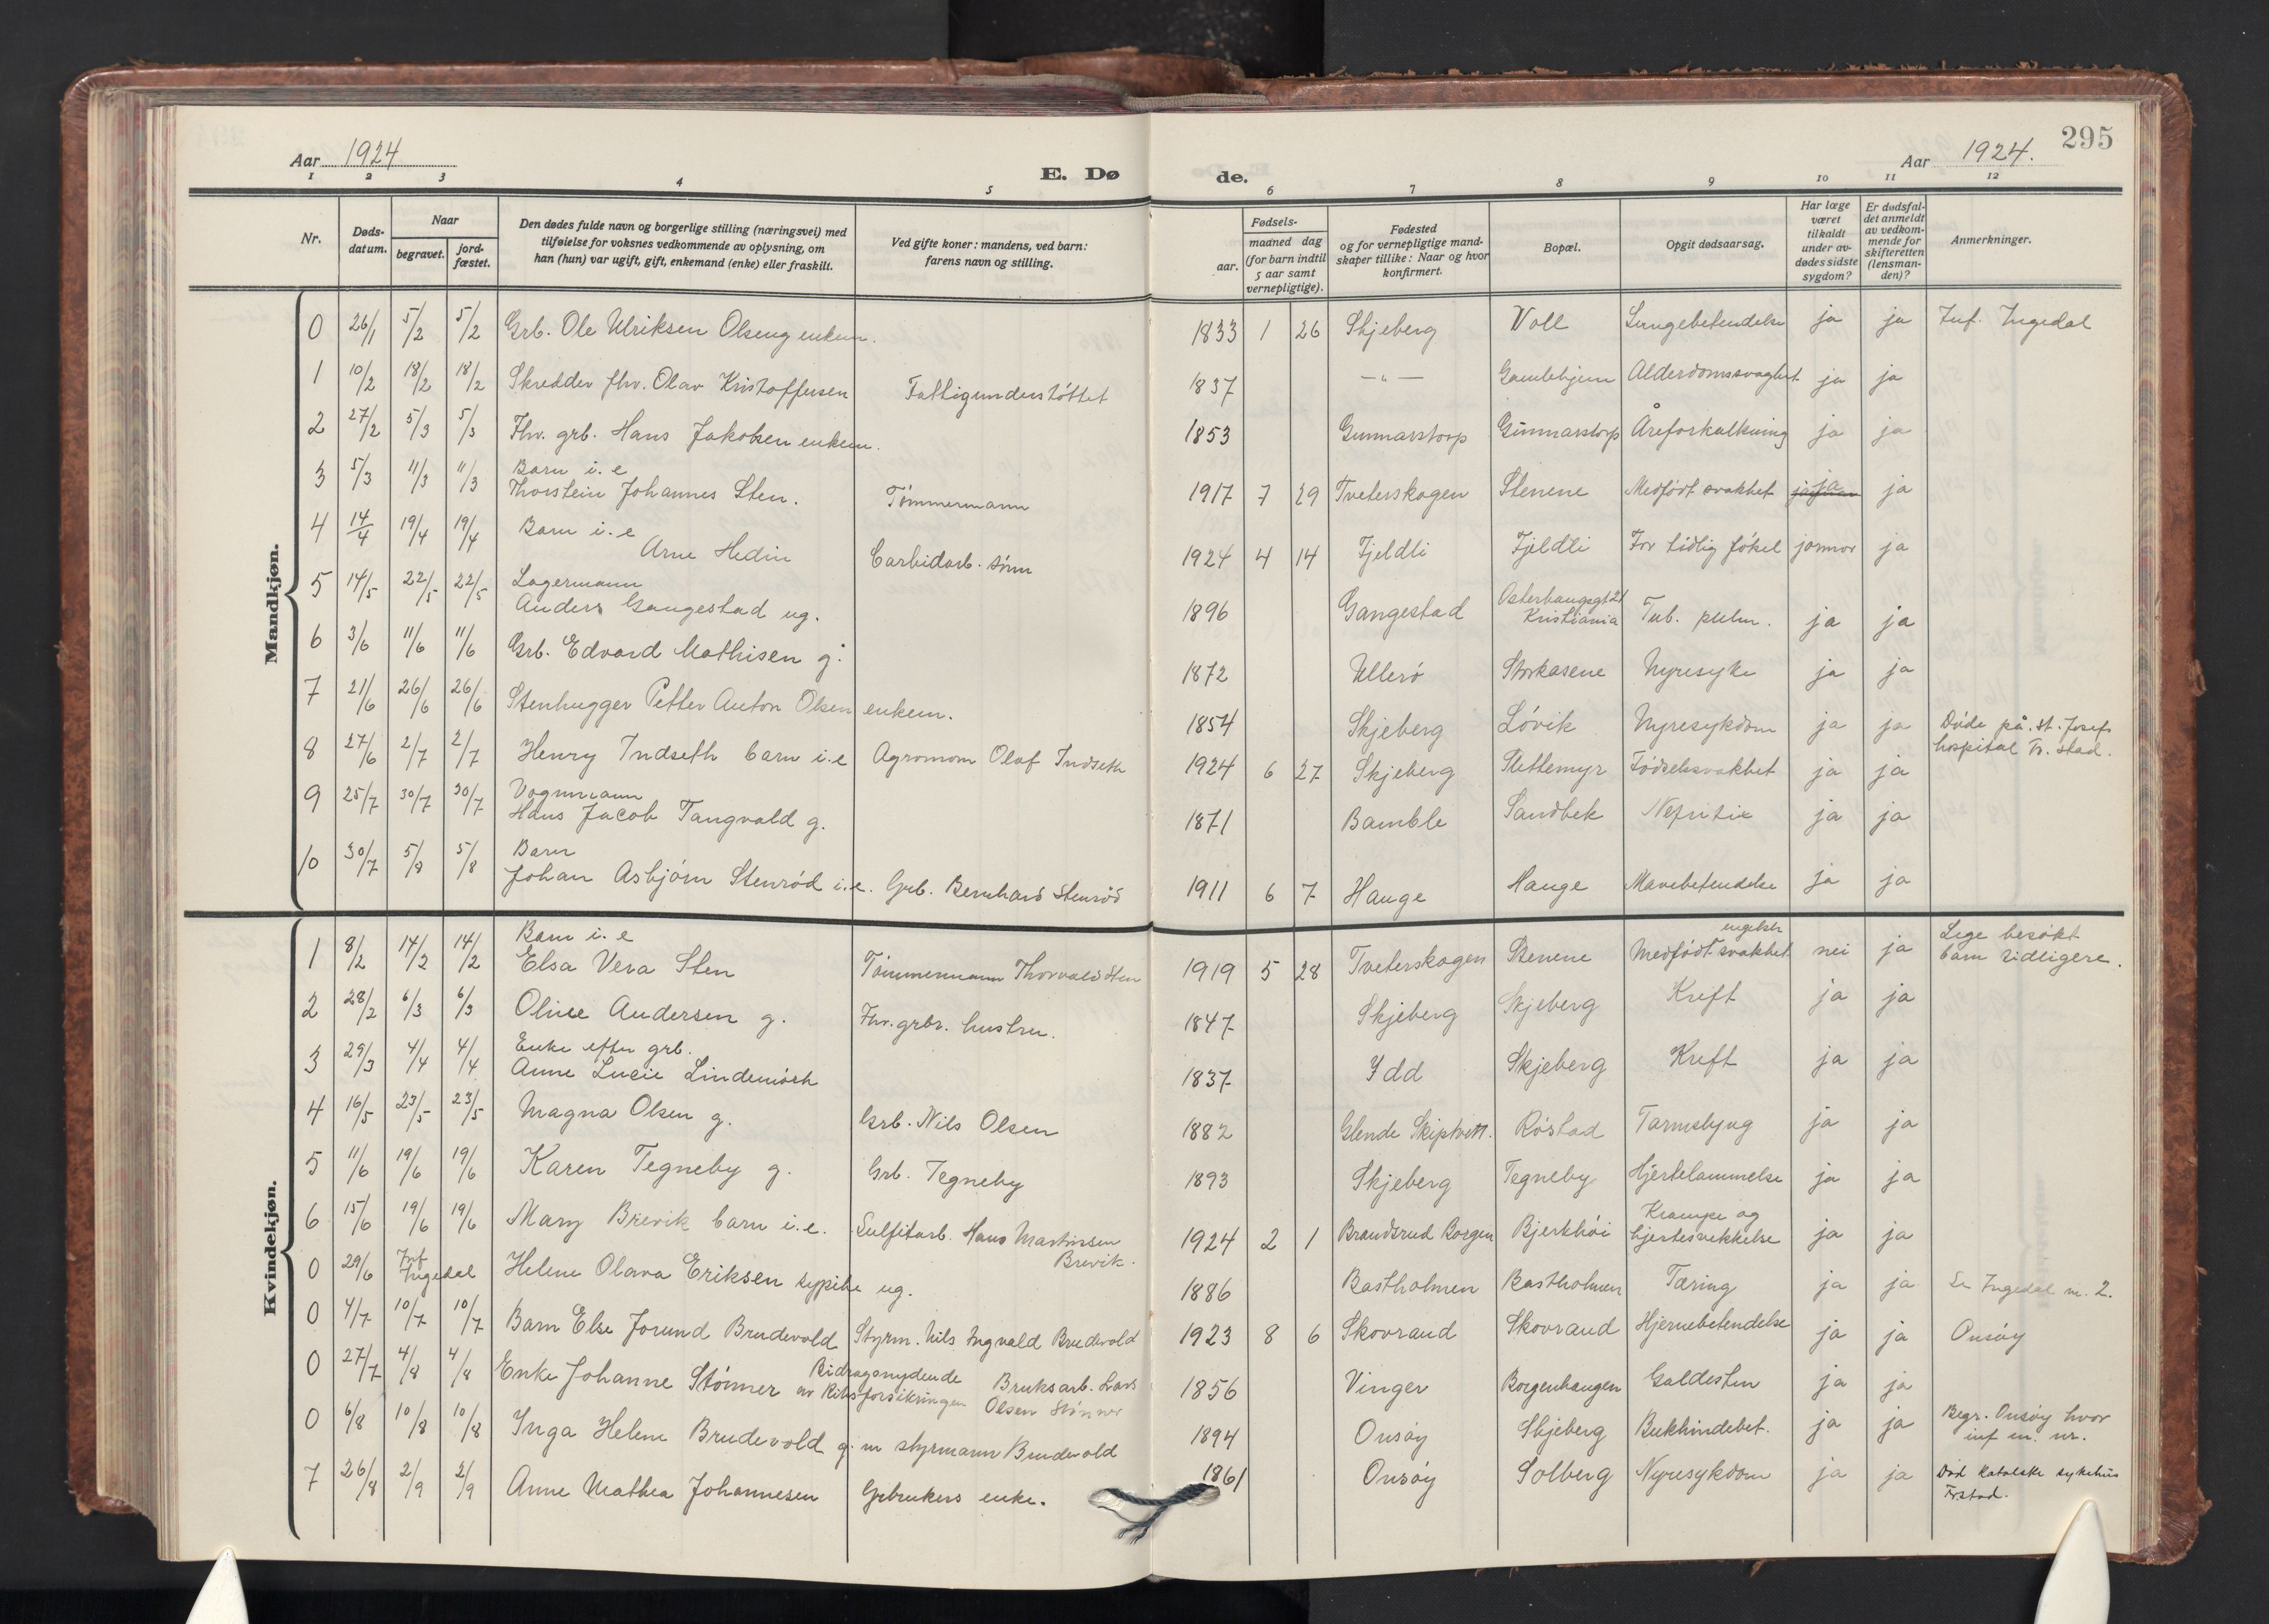 295
Aar 1924
E. Dø
de.
Aar 1924.
1 2 3 4 5 6 7 8 9 10 11 12
Nr.
Døds-datum.
Naar
begravet.
jord-fæstet.
Den dødes fulde navn og borgerlige stilling (næringsvei) med
tilføielse for voksnes vedkommende av oplysning, om
han (hun) var ugift, gift, enkemand (enke) eller fraskilt.
Ved gifte koner: mandens, ved barn:
farens navn og stilling.
Fødsels-
aar.
maaned dag
(for barn indtil
5 aar samt
vernepligtige).
Fødested
og for vernepligtige mand-
skaper tillike: Naar og hvor
konfirmert.
Bopæl.
Opgit dødsaarsag.
Har læge
været
tilkaldt
under av-
dødes sidste
sygdom?
Er dødsfal-
det anmeldt
av vedkom-
mende for
skifteretten
(lensman-
den)?
Anmerkninger.
Mandkjøn.
0 26/1 5/2 5/2 Grb. Ole Ulriksen Olseng enkem. 1833 1 26 Skjeberg Voll Lungebetendelse ja ja Inf. Ingedal
1 10/2 18/2 18/2 Skredder fhv. Olav Kristoffersen Fattigunderstöttet 1837 — " — Gamlehjem Alderdomssvaghet ja ja
2 27/2 5/3 5/3 Fhv. grb. Hans Jakobsen enkem. 1853 Gunnarstorp Gunnarstorp Åreforkalkning ja ja
3 5/3 11/3 11/3 Barn i. e
Thorstein Johannes Sten. Tömmermann 1917 7 29 Tveterskogen Stenene Medfödt svakhet ja ja
4 14/4 19/4 19/4 Barn i. e
Arne Hedin Carbidarb. sönn 1924 4 14 Fjeldli Fjeldli For tidlig födsel jormor ja
5 14/5 22/5 22/5 Lagermann
Anders Gangestad ug. 1896 Gangestad Osterhaugsgt 21
Kristiania Tub. pulm. ja ja
6 3/6 11/6 11/6 Grb. Edvard Mathisen g. 1872 Ullerö Storkasene Nyresyke ja ja
7 21/6 26/6 26/6 Stenhugger Petter Anton Olsen enkem. 1854 Skjeberg Lövik Nyresykdom ja ja Döde på. St. Josefs
hospital Fr. stad.
8 27/6 2/7 2/7 Henry Indseth barn i. e Agronom Olaf Indseth 1924 6 27 Skjeberg Slettemyr Födselssvakhet ja ja
9 25/7 30/7 30/7 Vognmann
Hans Jacob Tangvald g. 1871 Bamble Sandbek Nefritis ja ja
10 30/7 5/8 5/8 Barn
Johan Asbjörn Stenröd i. e. Grb. Bernhard Stenröd 1911 6 7 Hauge Hauge Mavebetendelse ja ja
Kvindekjøn.
1 8/2 14/2 14/2 Barn i. e
Elsa Vera Sten Tömmermann Thorvald Sten 1919 5 28 Tveterskogen Stenene engelsk
Medfödt svakhet nei ja Lege besökt
barn tidligere.
2 28/2 6/3 6/3 Oline Andersen g. Fhv. grbr. hustru. 1847 Skjeberg Skjeberg Kreft ja ja
3 29/3 4/4 4/4 Enke efter grb.
Anne Lucie Lindemörk 1837 Idd Skjeberg Kreft ja ja
4 16/5 23/5 23/5 Magna Olsen g. Grb. Nils Olsen 1882 Glende Skiptvett. Röstad Tarmslyng ja ja
5 11/6 19/6 19/6 Karen Tegneby g. Grb. Tegneby 1893 Skjeberg Tegneby Hjertelammelse ja ja
6 15/6 19/6 19/6 Mary Brevik barn i. e. Sulfitarb. Hans Martinsen
Brevik. 1924 2 1 Brandsrud Borgen Bjerkhöi Krampe og
hjertesvekkelse ja ja
0 29/6 Inf
Ingedal Helene Olava Eriksen sypike ug. 1886 Bastholmen Bastholmen Tæring ja ja Se Ingedal nr. 2.
0 4/7 10/7 10/7 Barn Else Jorund Brudevold Styrm. Nils Ingvald Brudevold 1923 8 6 Skovrand Skovrand Hjernebetendelse ja ja Onsöy
0 27/7 4/8 4/8 Enke Johanne Stömner Bidragsnydende
av Riksforsikringen Bruksarb. Lars
Olsen Stömner 1856 Vinger Borgenhaugen Galdesten ja ja
0 6/8 10/8 10/8 Inga Helene Brudevold g. m styrmann Brudevold 1894 Onsöy Skjeberg Bukhindebet. ja ja Begr. Onsöy hvor
inf m. nr.
7 26/8 2/9 2/9 Anne Mathea Johannesen Grbrukers enke. 1861 Onsöy Solberg Nyresykdom ja ja Död katolske sykehus
Frstad.